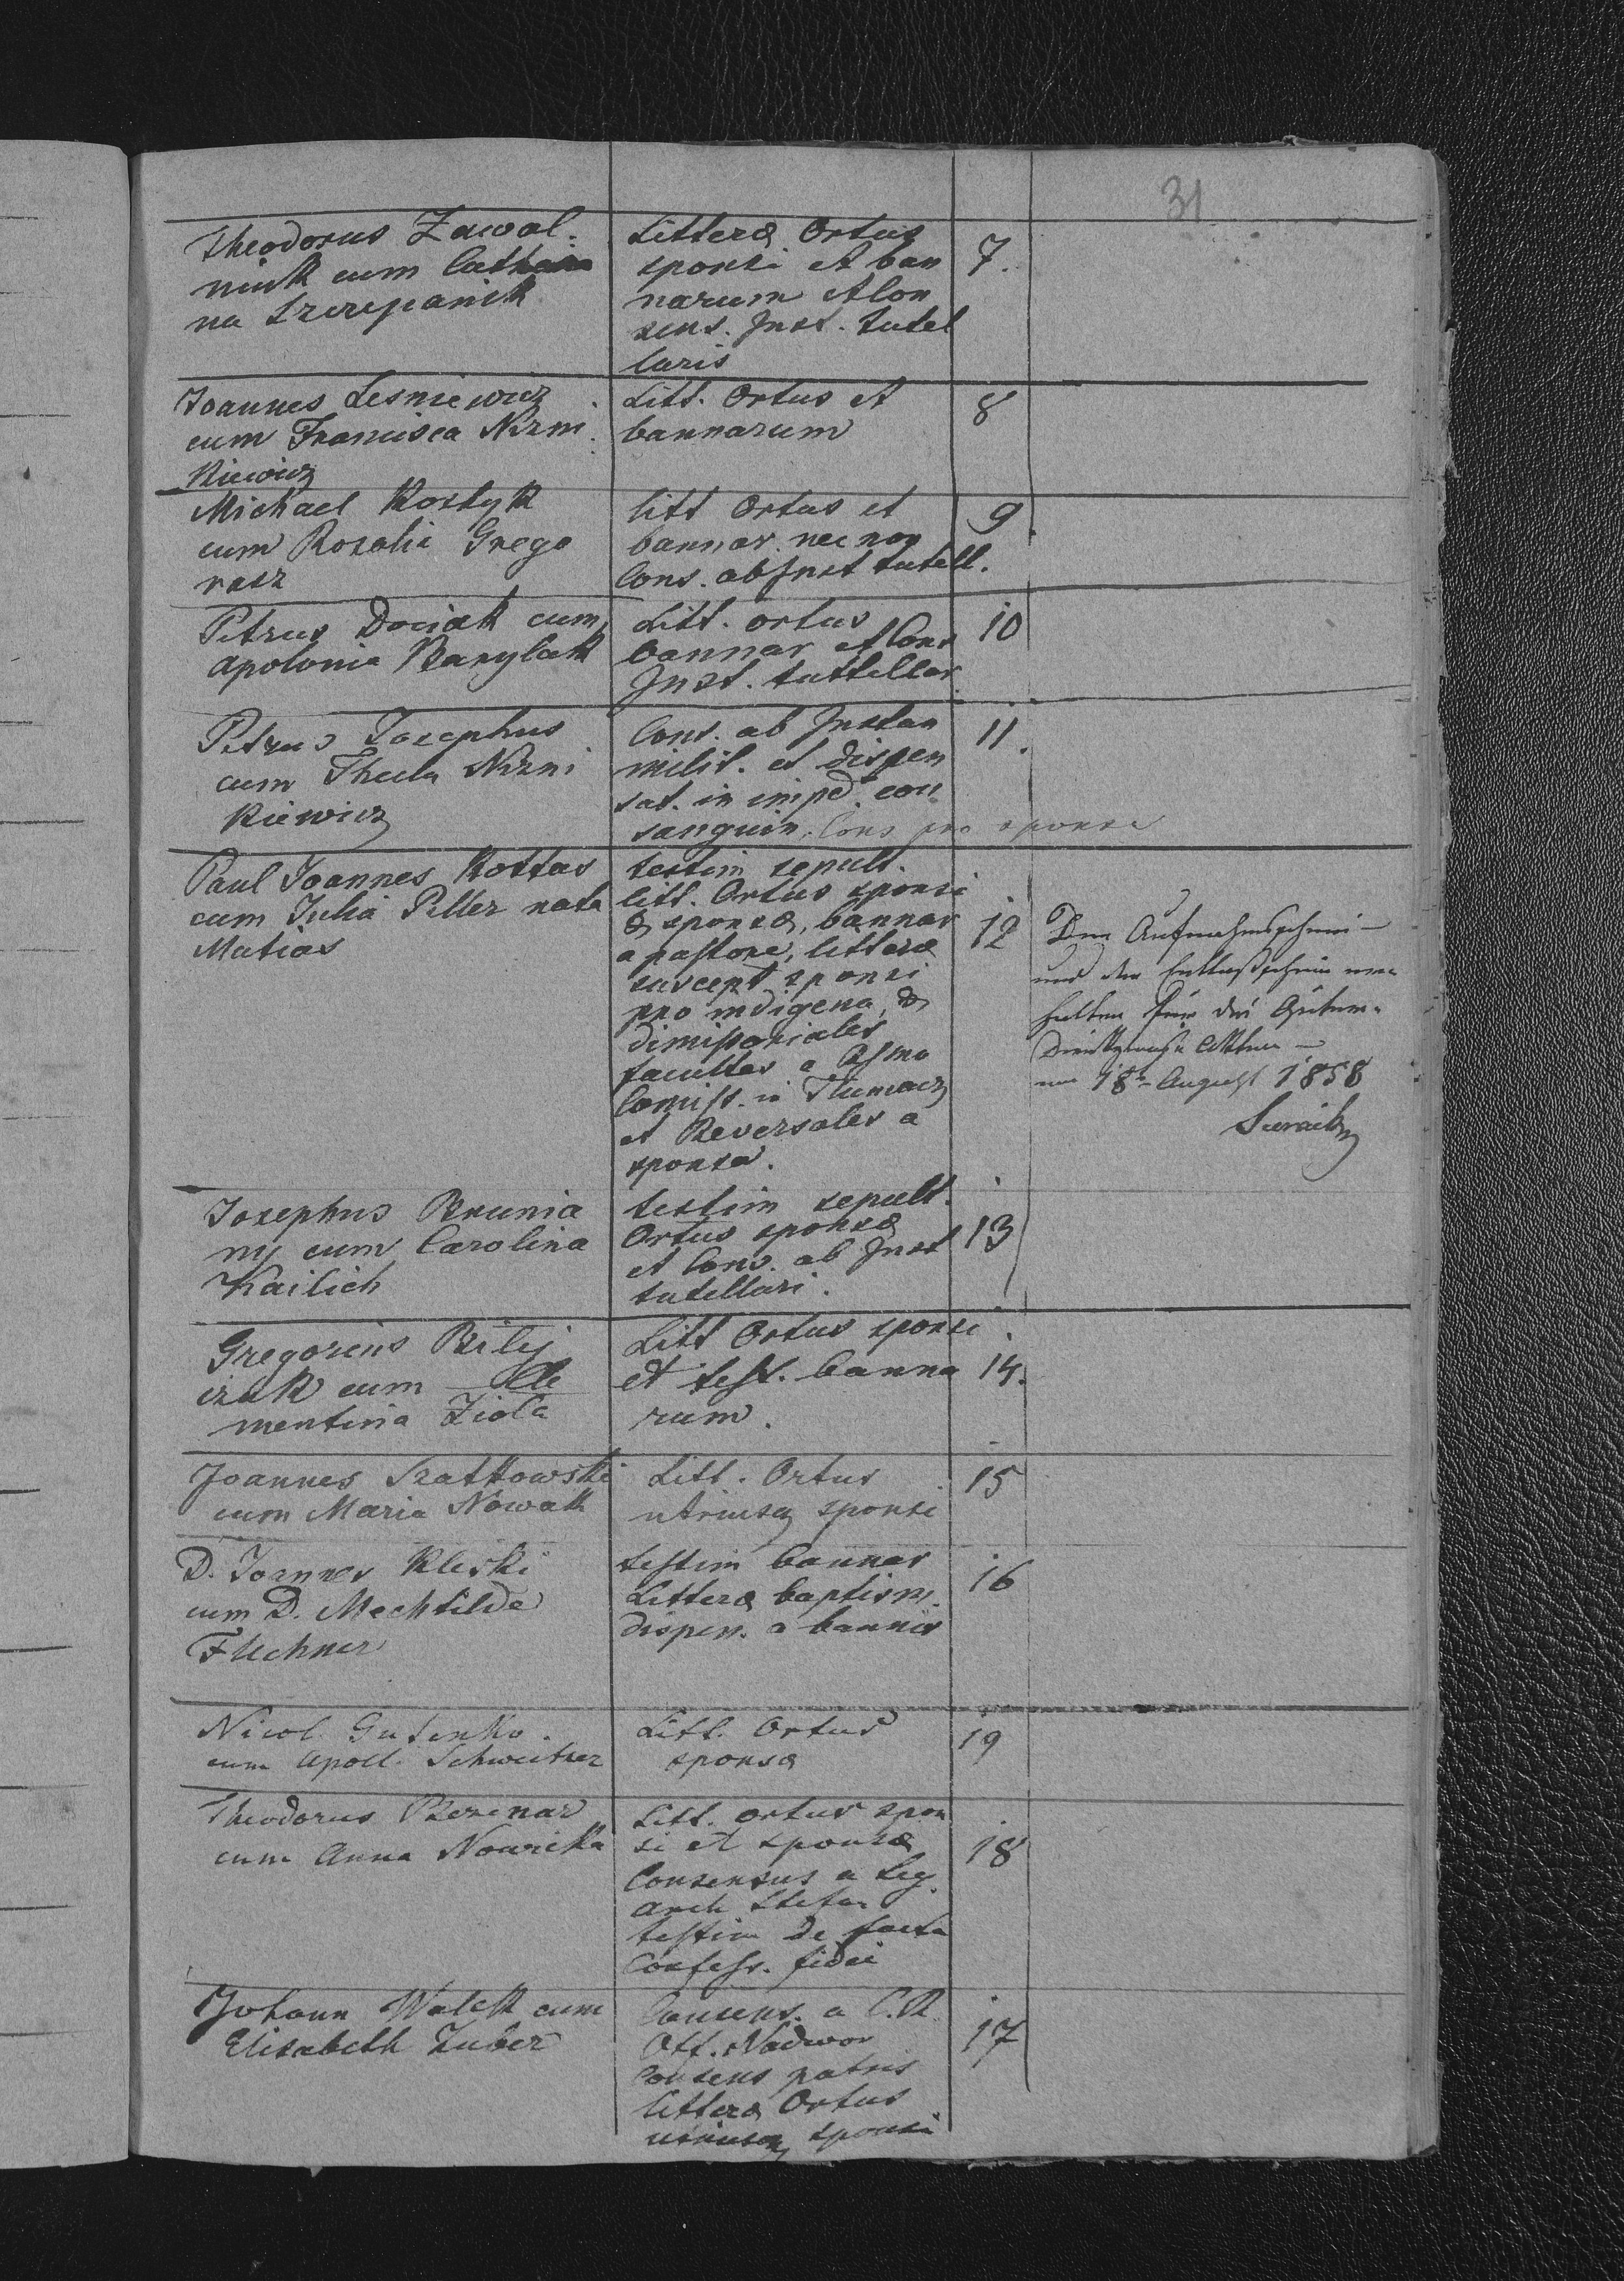 31
Theodorus Zawal-
niuk cum Catha
na Szczepanik
Litteræ Ortus
sponsi et ban
narum et Con
sens. Inst. tutel
laris
7.
Joannes Lesniewicz
cum Francisca Nizni
kiewicz
Litt. Ortus et
bannarum
8
Michael Kostyk
cum Rosalia Grego
rasz
litt Ortus et
bannar. nec non
Cons. ab Inst tutell.
9
Petrus Dociak cum
Apolonia Barylak
Litt. ortus
bannar et Cons
Inst. tuttellar
10
Petrus Josephus
cum Thecla Nizni
kiewicz
Cons. ab Instan
milit. et dispen
sat. in imped. con
sanguin. Cons pro sponsa
11.
Paul Joannes Kottas
cum Julia Piller nata
Matias
testim sepult.
litt. Ortus sponsi
& sponsæ, bannar
a pastore, litteræ
suscept sponsi
pro indigena, &
dimissoriales
facultes a
Comiss. in Tłumacz
et Reversales a
sponsa.
12
Den Aufnahmsschein
und den Entlaßschein
halten für die
am 18t August 1858
Josephus Brunia
ny cum Carolina
Kailich
testim sepult.
Ortus sponsæ
et Cons. ab Inst
tutellari.
13
Gregorius Bilij
czuk cum Cle
mentina Ziola
Litt Ortus sponsi
et test. banna
rum.
14.
Joannes Szatkowski
cum Maria Nowak
Litt. Ortus
utriusq sponsi
15
D. Joannes Kleski
cum D. Mechtilde
Flechner
testim bannar
Litteræ baptism.
dispen. a bannis
16
Nicol. Gutenko.
cum Apoll. Schweitzer
Litt. Ortus
sponsæ
19
Theodorus Bezenar
cum Anna Nowicka
Litt. ortus spon
si et sponsæ
Consensus a Leg.
Arch Stefan
testim de facta
Confess. fidei
18
Johann Walek cum
Elisabeth Zuber
Consens. a C.R.
Off. Nadwor
Consens patris
litteræ Ortus
utriusq sponsi
17